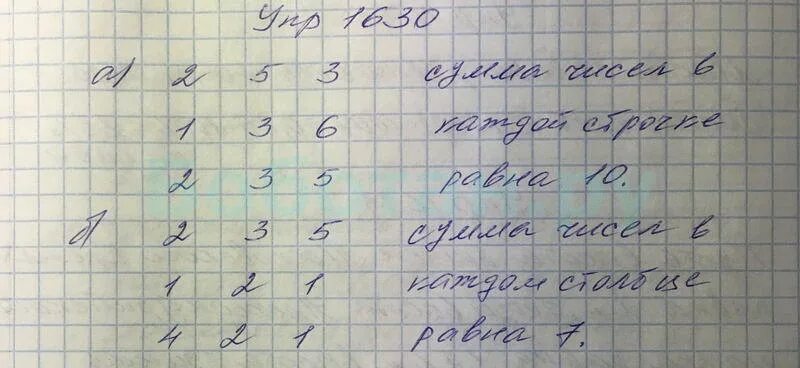 Упр 1630
а) 2 5 3 сумма чисел в
1 3 6 каждой строчке
2 3 5 равна 10.
б) 2 3 5 сумма чисел в
1 2 1 каждом столбце
4 2 1 равна 7.